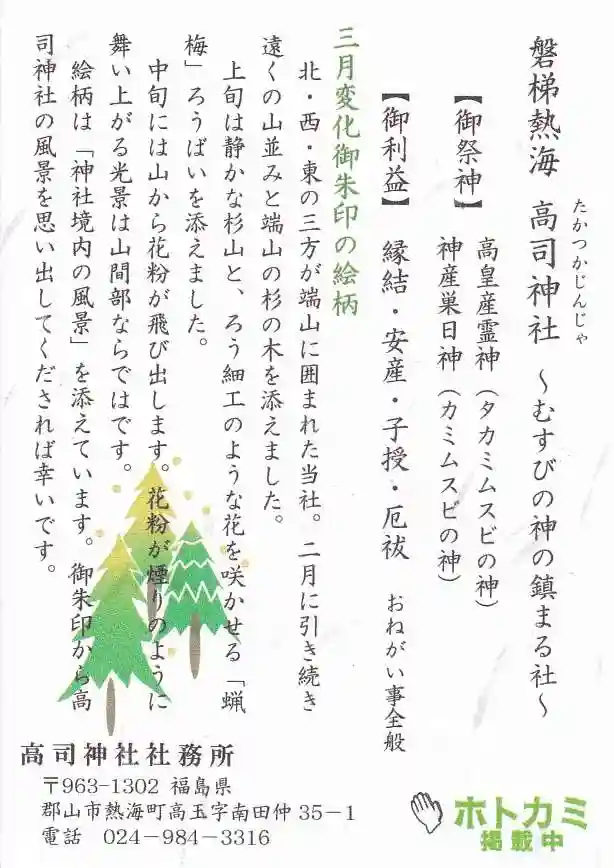 磐梯熱海 高司神社 ～むすびの神の鎮まる社～
たかつかじんじゃ
【御祭神】 高皇産霊神(タカミムスビの神)
神産巣日神(カミムスビの神)
【御利益】 縁結・安産・子授・厄祓 おねがい事全般
三月変化御朱印の絵柄
北・西・東の三方が端山に囲まれた当社。二月に引き続き
遠くの山並みと端山の杉の木を添えました。
上旬は静かな杉山と、ろう細工のような花を咲かせる「蝋
梅」ろうばいを添えました。
中旬には山から花粉が飛び出します。花粉が煙りのように
舞い上がる光景は山間部ならではです。
絵柄は「神社境内の風景」を添えています。御朱印から高
司神社の風景を思い出してくだされば幸いです。
高司神社社務所
〒963-1302 福島県
郡山市熱海町高玉字南田仲35－1
電話 024－984－3316
ホトカミ
掲載中